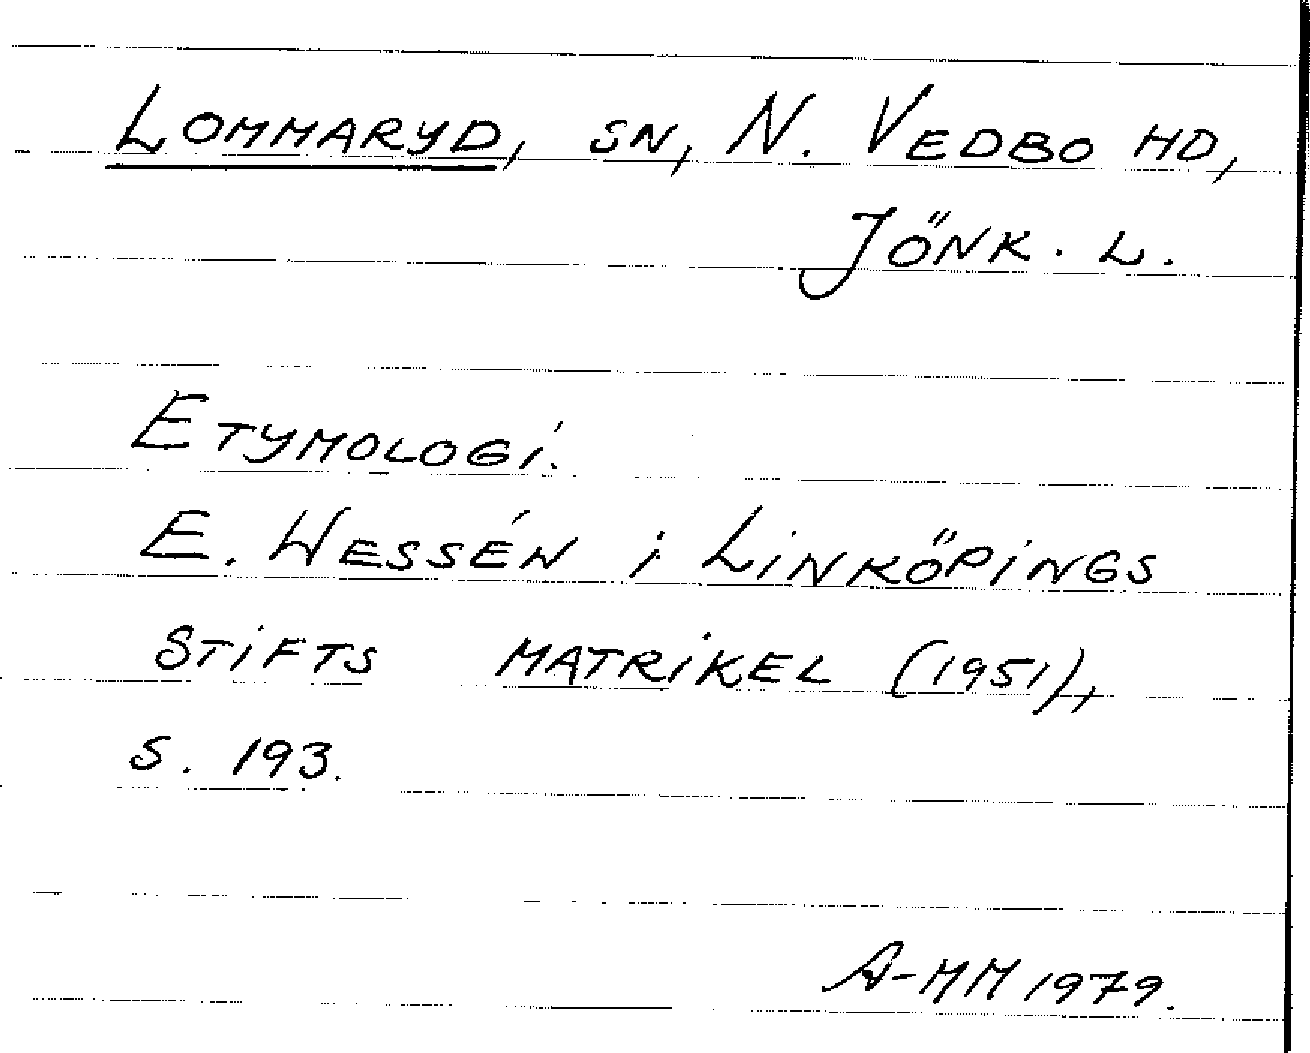 LOMMARYD, SN, N. VEDBO HD,
JÖNK. L.
ETYMOLOGI.
E. WESSÉN i LINKÖPINGS
STIFTS MATRIKEL (1951),
S. 193.
A-MM 1979.